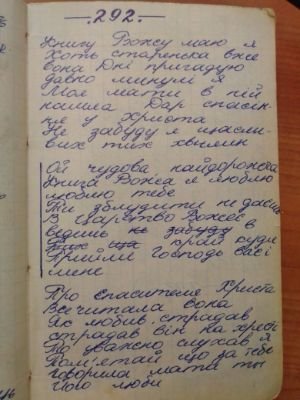 –.292.–
Книгу Божу маю я
Хоть старенька вже
вона Дні пригадую
давно минулі я
Моя мати в ній
найшла Дар спасін-
ня у Христа
Не забуду я щасли-
вих тих хвилин
Ой чудова найдорожча
Книга Божа я люблю
люблю тебе
Ти зблудити не даєш
В Царство Боже в
ведиш не забуду
край куди
прийме Господь Всіх
мене
Про спасителя Христа
Все читала вона
Як любив страдав
страдав він на хресті
То уважно слухав я
Пам'ятай що за тебе
говорила мати ти
Його люби